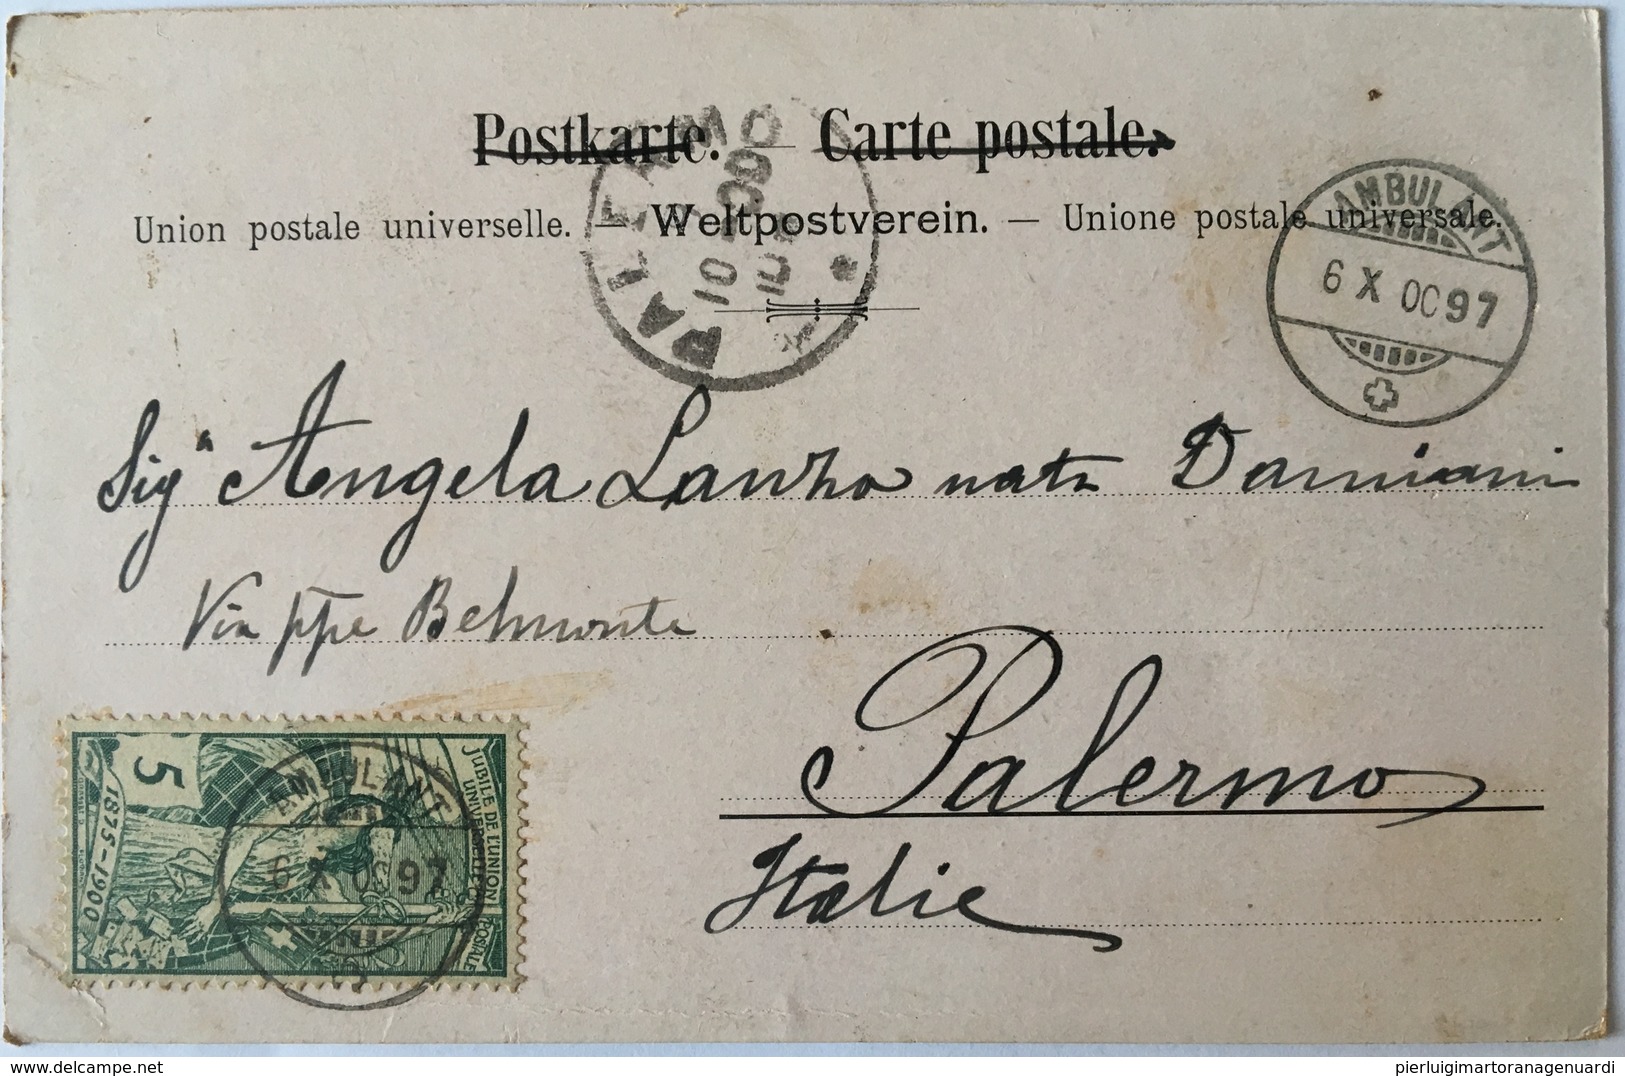 Postkarte. — Carte postale.
Union postale universelle. — Weltpostverein. — Unione postale universale.
PALERMO
10-00
10
AMBULANT
6 X 00 97
Sigª Angela Lanza nata Damiani
Via ppe Belmonte
Palermo
Italie
5
1875-1900
JUBILÉ DE L'UNION
UNIVERSELLE POSTALE
AMBULANT
6 X 00 97
pierluigimartoranagenuardi